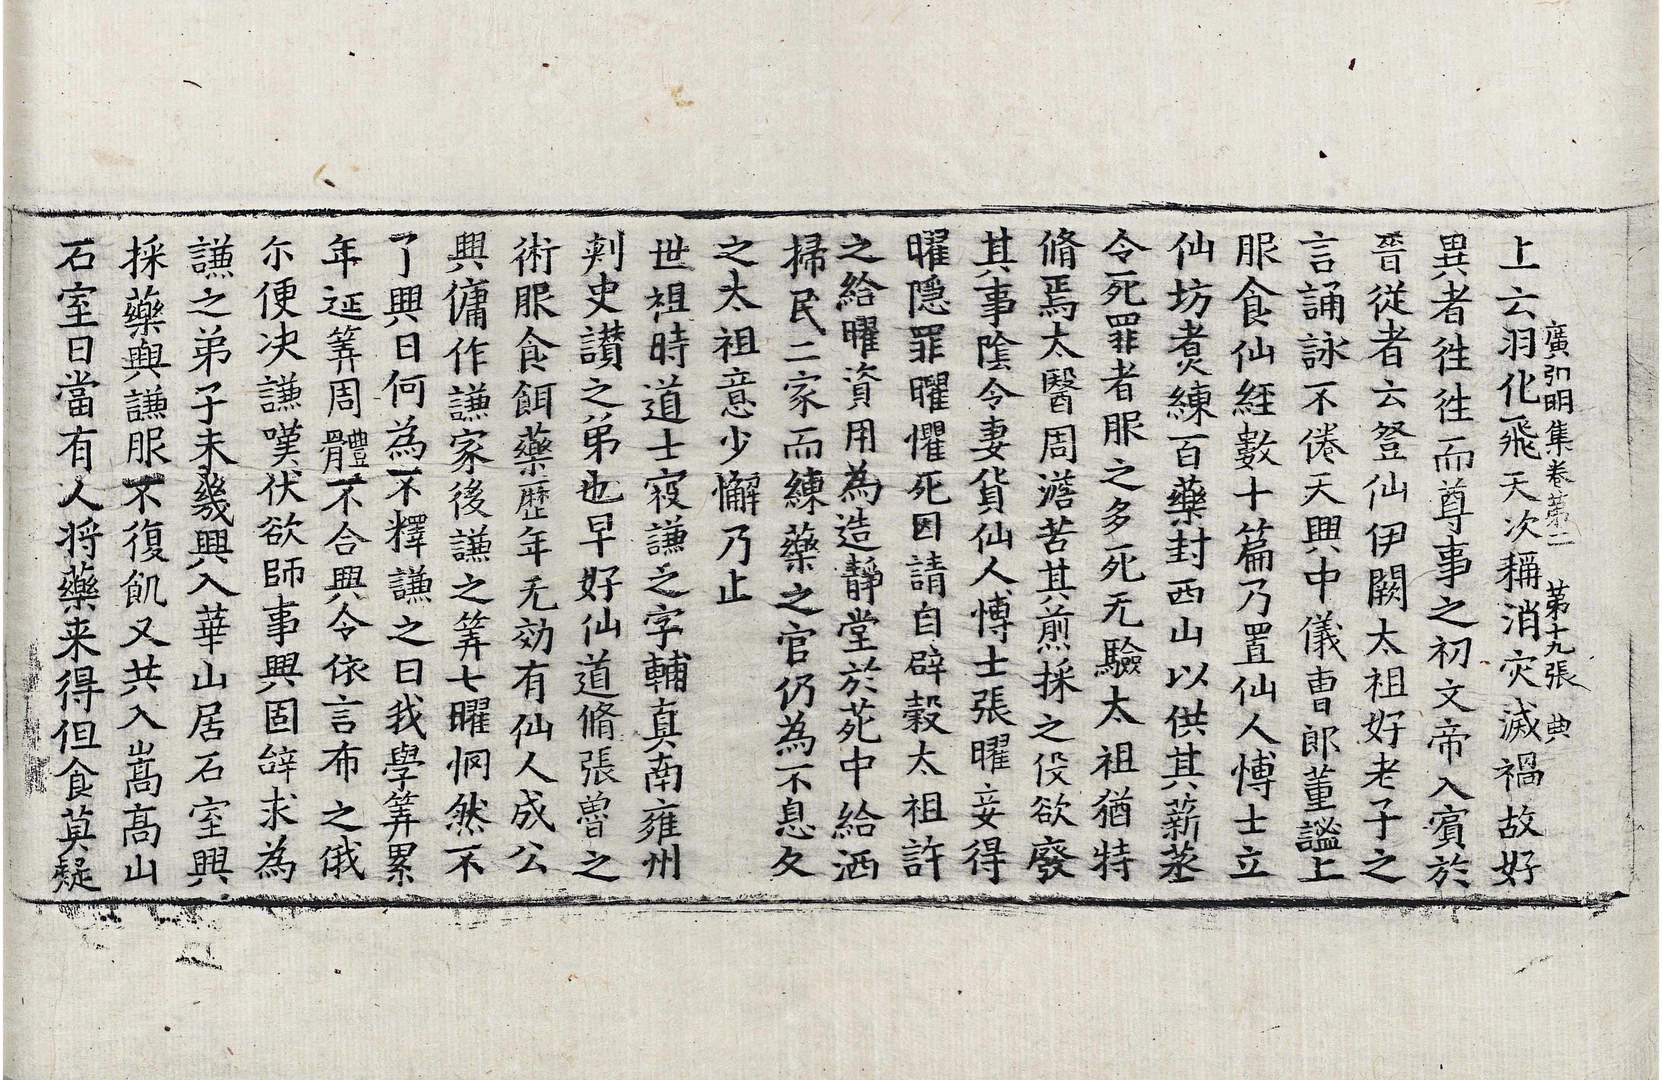 廣弘明集卷第二　第十九張　典
上云羽化飛天次稱消灾滅禍故好
異者往往而尊事之初文帝入賔於
晉從者云登仙伊闕太祖好老子之
言誦詠不倦天興中儀曹郎董謐上
服食仙經數十篇乃置仙人博士立
仙坊煑練百藥封西山以供其薪蒸
令死罪者服之多死无驗太祖猶特
脩焉太醫周澹苦其煎採之役欲廢
其事陰令妻貨仙人博士張曜妾得
曜隱罪曜懼死因請自辟穀太祖許
之給曜資用為造靜堂於苑中給洒
掃民二家而練藥之官仍為不息久
之太祖意少懈乃止
世祖時道士寇謙之字輔真南雍州
刺史讚之弟也早好仙道脩張魯之
術服食餌藥歷年无効有仙人成公
興傭作謙家後謙之筭七曜惘然不
了興曰何為不釋謙之曰我學筭累
年近筭周體不合興令依言布之俄
尒便决謙嘆伏欲師事興固辝求為
謙之弟子未幾興入華山居石室興
採藥與謙服不復飢又共入嵩高山
石室曰當有人将藥来得但食莫疑